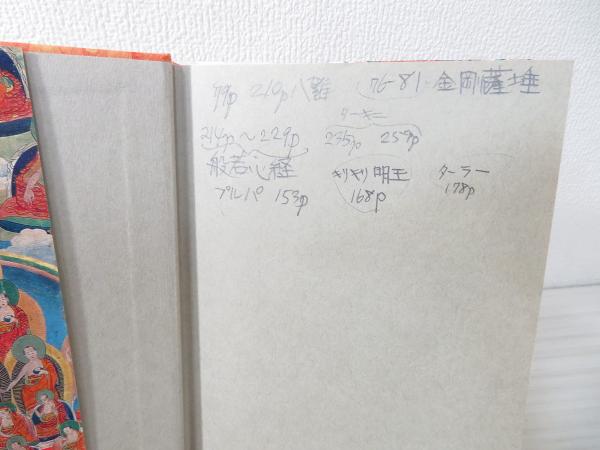 99p 210p 八難 76-81 金岡薩埵
ターキニ
214p～229p 235p 259p
般若心経 キリキリ明王 ターラー
プルパ 153p 168p 178p